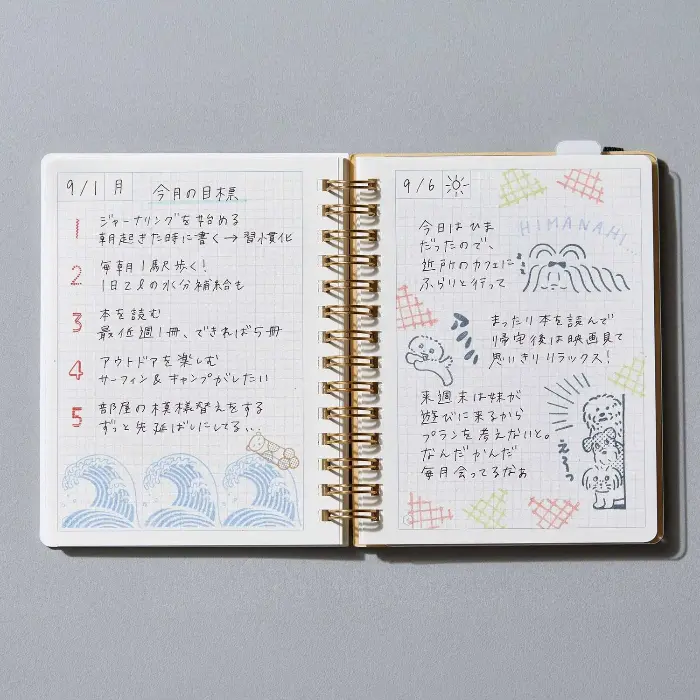 9/1 月 今月の目標
1 ジャーナリングを始める
朝起きた時に書く→習慣化
2 毎朝1駅尺歩く!
1日2ℓの水分補給も
3 本を読む
最低週1冊、できれば5冊
4 アウトドアを楽しむ
サーフィン&キャンプがしたい
5 部屋の模様替えをする
ずっと先延ばしにしてる...
9/6
HIMANAHI...
今日はひま
だったので、
近所のカフェに
ふらりと行って
まったり本を読んで
帰宅後は映画見て
思いきりリラックス!
来週末は妹が
遊びに来るから
プランを考えないと。
なんだかんだ
毎月会ってるなぁ
えーっ